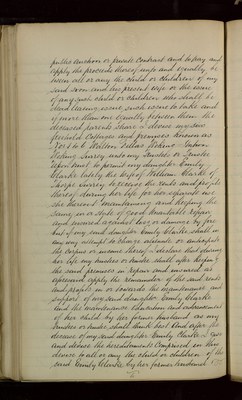 public auction or private contract and to pay and
apply the proceeds thereof and equally be
tween all or any the child or children of my
said son and his present wife or the issue
of any such child or children who shall be
dead leaving issue such issue to take and
if more than one equally between them the
deceased parents share I devise my
freehold Cottages and premises known as
Nos 1 to 6 Wilton Villas
Surrey unto my Trustees or Trustee
Upon trust to permit my daughter Emily
Clarke lately the wife of William Clarke of
Surrey to receive the rents and profits
thereof during her life for her separate use
she thereout maintaining and keeping the
same in a state of good tenantable repair
and insured against loss or damage by fire
but if my said daughter Emily Clarke shall in
any way attempt to charge or
the corpus or income thereof I declare that during
her life my trustees or trustee shall after keeping
the said premises in repair and insured as
aforesaid apply the remainder of the said rents
and profits in or towards the maintenance and
support of my said daughter Emily Clarke
and the maintenance education and advancement
of her child by her former husband as my
trustees or trustee shall think best And after the
decease of my said daughter Emily Clarke I
and devise the hereditaments comprised in this
devise to all or any the child or children of the
said Emily Clarke by her former husband